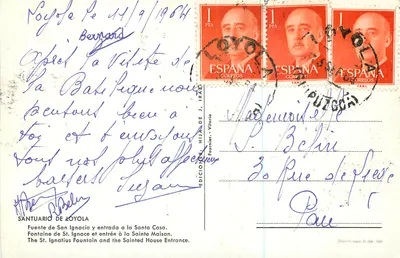 Loyola le 11/9/1964
Bernard
Après la visite de
la Basilique nous
pensons bien à
toi et t'envoyons
tous nos plus affectueux
baisers
SANTUARIO DE LOYOLA
Fuente de San Ignacio y entrada a la Santa Casa.
Fontaine de St. Ignace et entrèe à la Sainte Maison.
The St. Ignatius Fountain and the Sainted House Entrance.
1 PTA
ESPAÑA
CORREOS
1 PTA
ESPAÑA
CORREOS
1 PTA
ESPAÑA
CORREOS
LOYOLA
LOYOLA
(GUIPUZCOA)
Mademoiselle
S. Bélin
30 Rue de